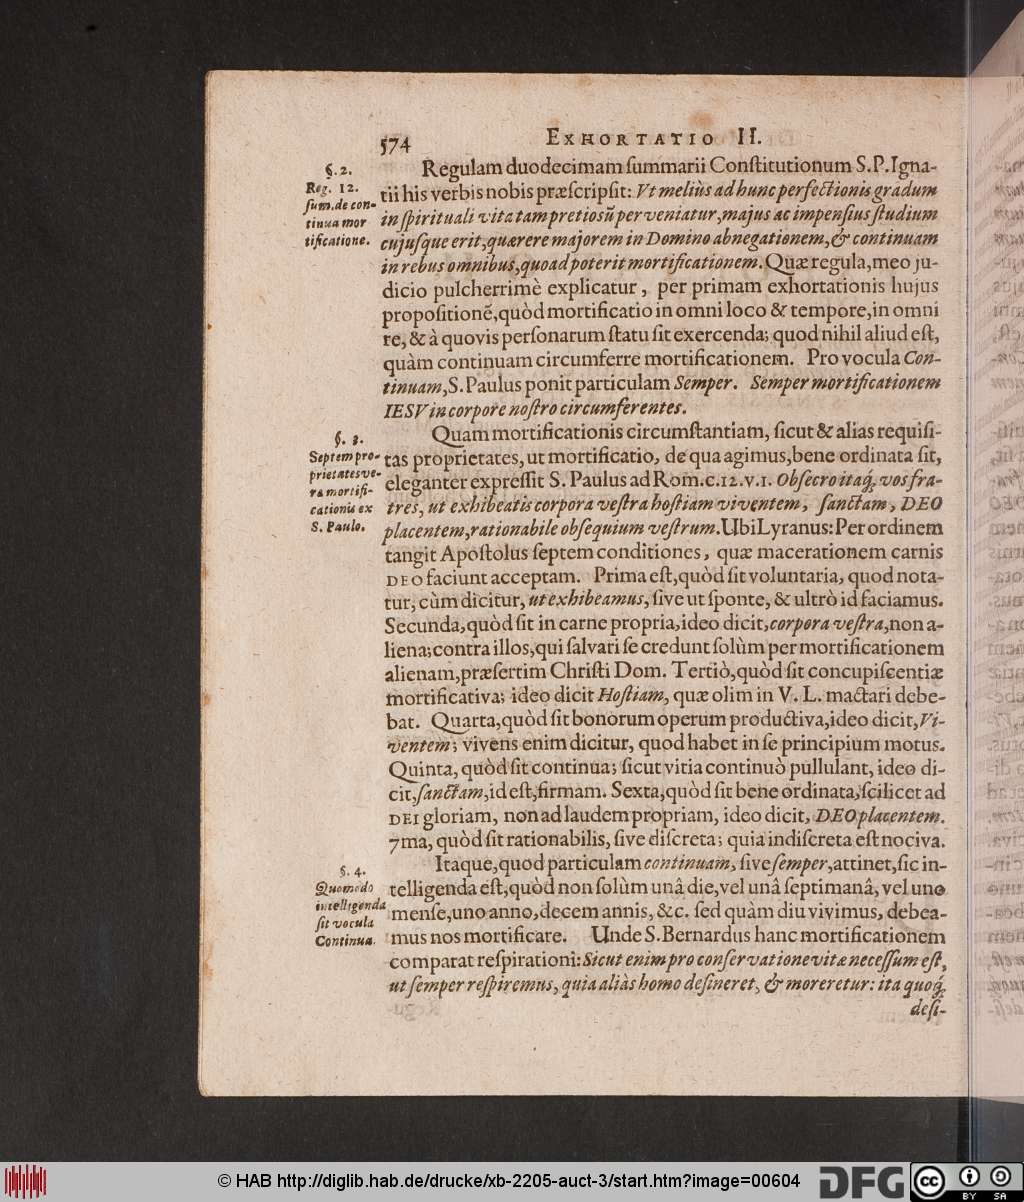 574
EXHORTATIO II.
§. 2.
Reg. 12.
ſum. de con-
tinua mor
tificatione.
Regulam duodecimam ſummarii Conſtitutionum S. P. Igna-
tii his verbis nobis præſcripſit: Vt meliùs ad hunc perfectionis gradum
in ſpirituali vita tam pretiosũ perveniatur, majus ac impenſius ſtudium
cujuſque erit, quærere majorem in Domino abnegationem, & continuam
in rebus omnibus, quoad poterit mortificationem. Quæ regula, meo ju-
dicio pulcherrimè explicatur, per primam exhortationis hujus
propoſitionẽ, quòd mortificatio in omni loco & tempore, in omni
re, & à quovis perſonarum ſtatu ſit exercenda; quod nihil aliud eſt,
quàm continuam circumferre mortificationem. Pro vocula Con-
tinuam, S. Paulus ponit particulam Semper. Semper mortificationem
IESV in corpore noſtro circumferentes.
§. 3.
Septem pro-
prietates ve-
ra mortifi-
cationis ex
S. Paulo.
Quam mortificationis circumſtantiam, ſicut & alias requiſi-
tas proprietates, ut mortificatio, de qua agimus, bene ordinata ſit,
eleganter expreſſit S. Paulus ad Rom. c. 12. v. 1. Obſecro itaq́; vos fra-
tres, ut exhibeatis corpora veſtra hoſtiam viventem, ſanctam, DEO
placentem, rationabile obſequium veſtrum. Ubi Lyranus: Per ordinem
tangit Apoſtolus ſeptem conditiones, quæ macerationem carnis
DEO faciunt acceptam. Prima eſt, quòd ſit voluntaria, quod nota-
tur, cùm dicitur, ut exhibeamus, ſive ut ſponte, & ultrò id faciamus.
Secunda, quòd ſit in carne propria, ideo dicit, corpora veſtra, non a-
liena; contra illos, qui ſalvari ſe credunt ſolùm per mortificationem
alienam, præſertim Chriſti Dom. Tertiò, quòd ſit concupiſcentiæ
mortificativa; ideo dicit Hoſtiam, quæ olim in V. L. mactari debe-
bat. Quarta, quòd ſit bonorum operum productiva, ideo dicit, Vi-
ventem; vivens enim dicitur, quod habet in ſe principium motus.
Quinta, quòd ſit continua; ſicut vitia continuò pullulant, ideo di-
cit, ſanctam, id eſt, firmam. Sexta, quòd ſit bene ordinata, ſcilicet ad
DEI gloriam, non ad laudem propriam, ideo dicit, DEO placentem.
7ma, quòd ſit rationabilis, ſive diſcreta; quia indiſcreta eſt nociva.
§. 4.
Quomodo
intelligenda
ſit vocula
Continua.
Itaque, quod particulam continuam, ſive ſemper, attinet, ſic in-
telligenda eſt, quòd non ſolùm unâ die, vel unâ ſeptimanâ, vel uno
menſe, uno anno, decem annis, &c. ſed quàm diu vivimus, debea-
mus nos mortificare. Unde S. Bernardus hanc mortificationem
comparat reſpirationi: Sicut enim pro conſervatione vitæ neceſſum eſt,
ut ſemper reſpiremus, quia aliàs homo deſineret, & moreretur: ita quoq́;
deſi-
© HAB http://diglib.hab.de/drucke/xb-2205-auct-3/start.htm?image=00604
DFG
cc
BY SA